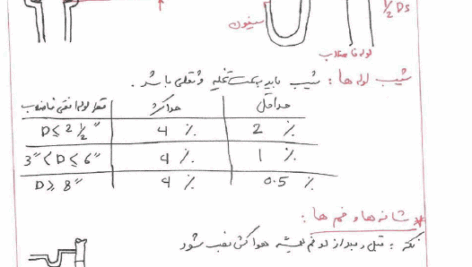 1/2 Ds
سیفون
لوله فاضلاب
شیب لوله ها : شیب باید بسمت تخلیه و ثقلی باشد .
قطر لوله افقی فاضلاب حداکثر حداقل
D≤2 1/2" 4 % 2 %
3"≤D≤6" 4 % 1 %
D≥8" 4 % 0.5 %
شانه ها و خم ها :
نکته : قبل و بعد از دو خم همیشه هواکش نصب شود